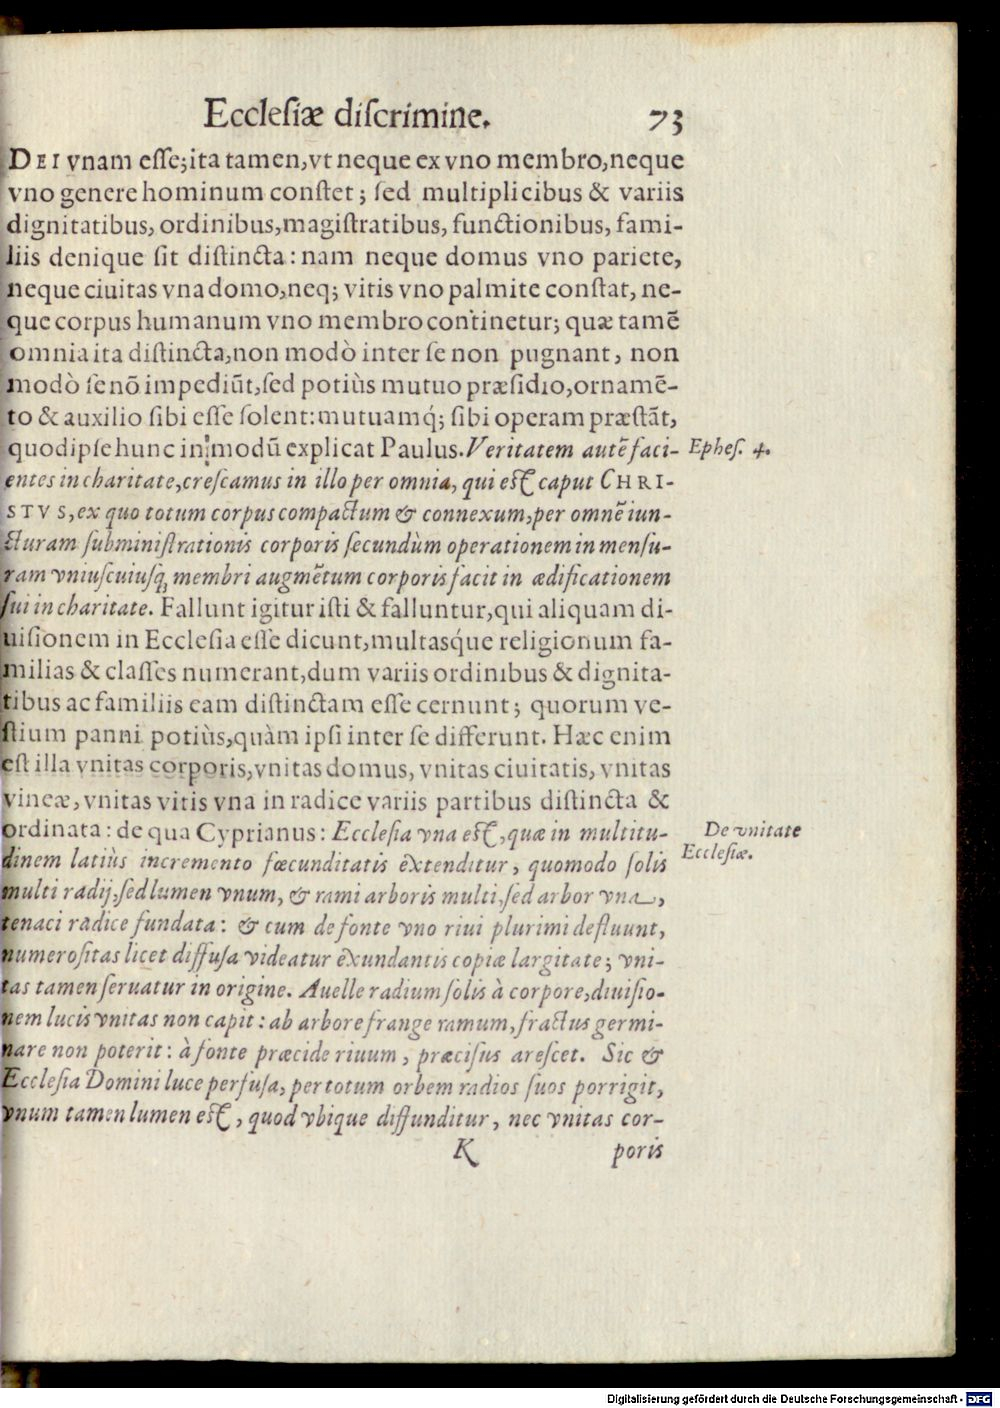 Ecclesiæ discrimine. 73
DEI vnam esse; ita tamen, vt neque ex vno membro, neque
vno genere hominum constet; sed multiplicibus & variis
dignitatibus, ordinibus, magistratibus, functionibus, fami-
liis denique sit distincta: nam neque domus vno pariete,
neque ciuitas vna domo, neq; vitis vno palmite constat, ne-
que corpus humanum vno membro continetur; quæ tamẽ
omnia ita distincta, non modò inter se non pugnant, non
modò se nõ impediũt, sed potiùs mutuo præsidio, ornamẽ-
to & auxilio sibi esse solent: mutuamq́; sibi operam præstãt,
quod ipse hunc in modũ explicat Paulus. Veritatem autẽ faci-
Ephes. 4.
entes in charitate, crescamus in illo per omnia, qui est caput CHRI-
STVS, ex quo totum corpus compactum & connexum, per omnẽ iun-
cturam subministrationis corporis secundùm operationem in mensu-
ram vniuscuiusq; membri augmẽtum corporis facit in ædificationem
sui in charitate. Fallunt igitur isti & falluntur, qui aliquam di-
uisionem in Ecclesia esse dicunt, multasq́ue religionum fa-
milias & classes numerant, dum variis ordinibus & dignita-
tibus ac familiis eam distinctam esse cernunt; quorum ve-
stium panni potiùs, quàm ipsi inter se differunt. Hæc enim
est illa vnitas corporis, vnitas domus, vnitas ciuitatis, vnitas
vineæ, vnitas vitis vna in radice variis partibus distincta &
ordinata: de qua Cyprianus: Ecclesia vna est, quæ in multitu-
De vnitate
Ecclesiæ.
dinem latiùs incremento fœcunditatis extenditur, quomodo solis
multi radij, sed lumen vnum, & rami arboris multi, sed arbor vna,
tenaci radice fundata: & cum de fonte vno riui plurimi defluunt,
numerositas licet diffusa videatur exundantis copiæ largitate; vni-
tas tamen seruatur in origine. Auelle radium solis à corpore, diuisio-
nem lucis vnitas non capit: ab arbore frange ramum, fractus germi-
nare non poterit: à fonte præcide riuum, præcisus arescet. Sic &
Ecclesia Domini luce perfusa, per totum orbem radios suos porrigit,
vnum tamen lumen est, quod vbique diffunditur, nec vnitas cor-
K poris
Digitalisierung gefördert durch die Deutsche Forschungsgemeinschaft - DFG